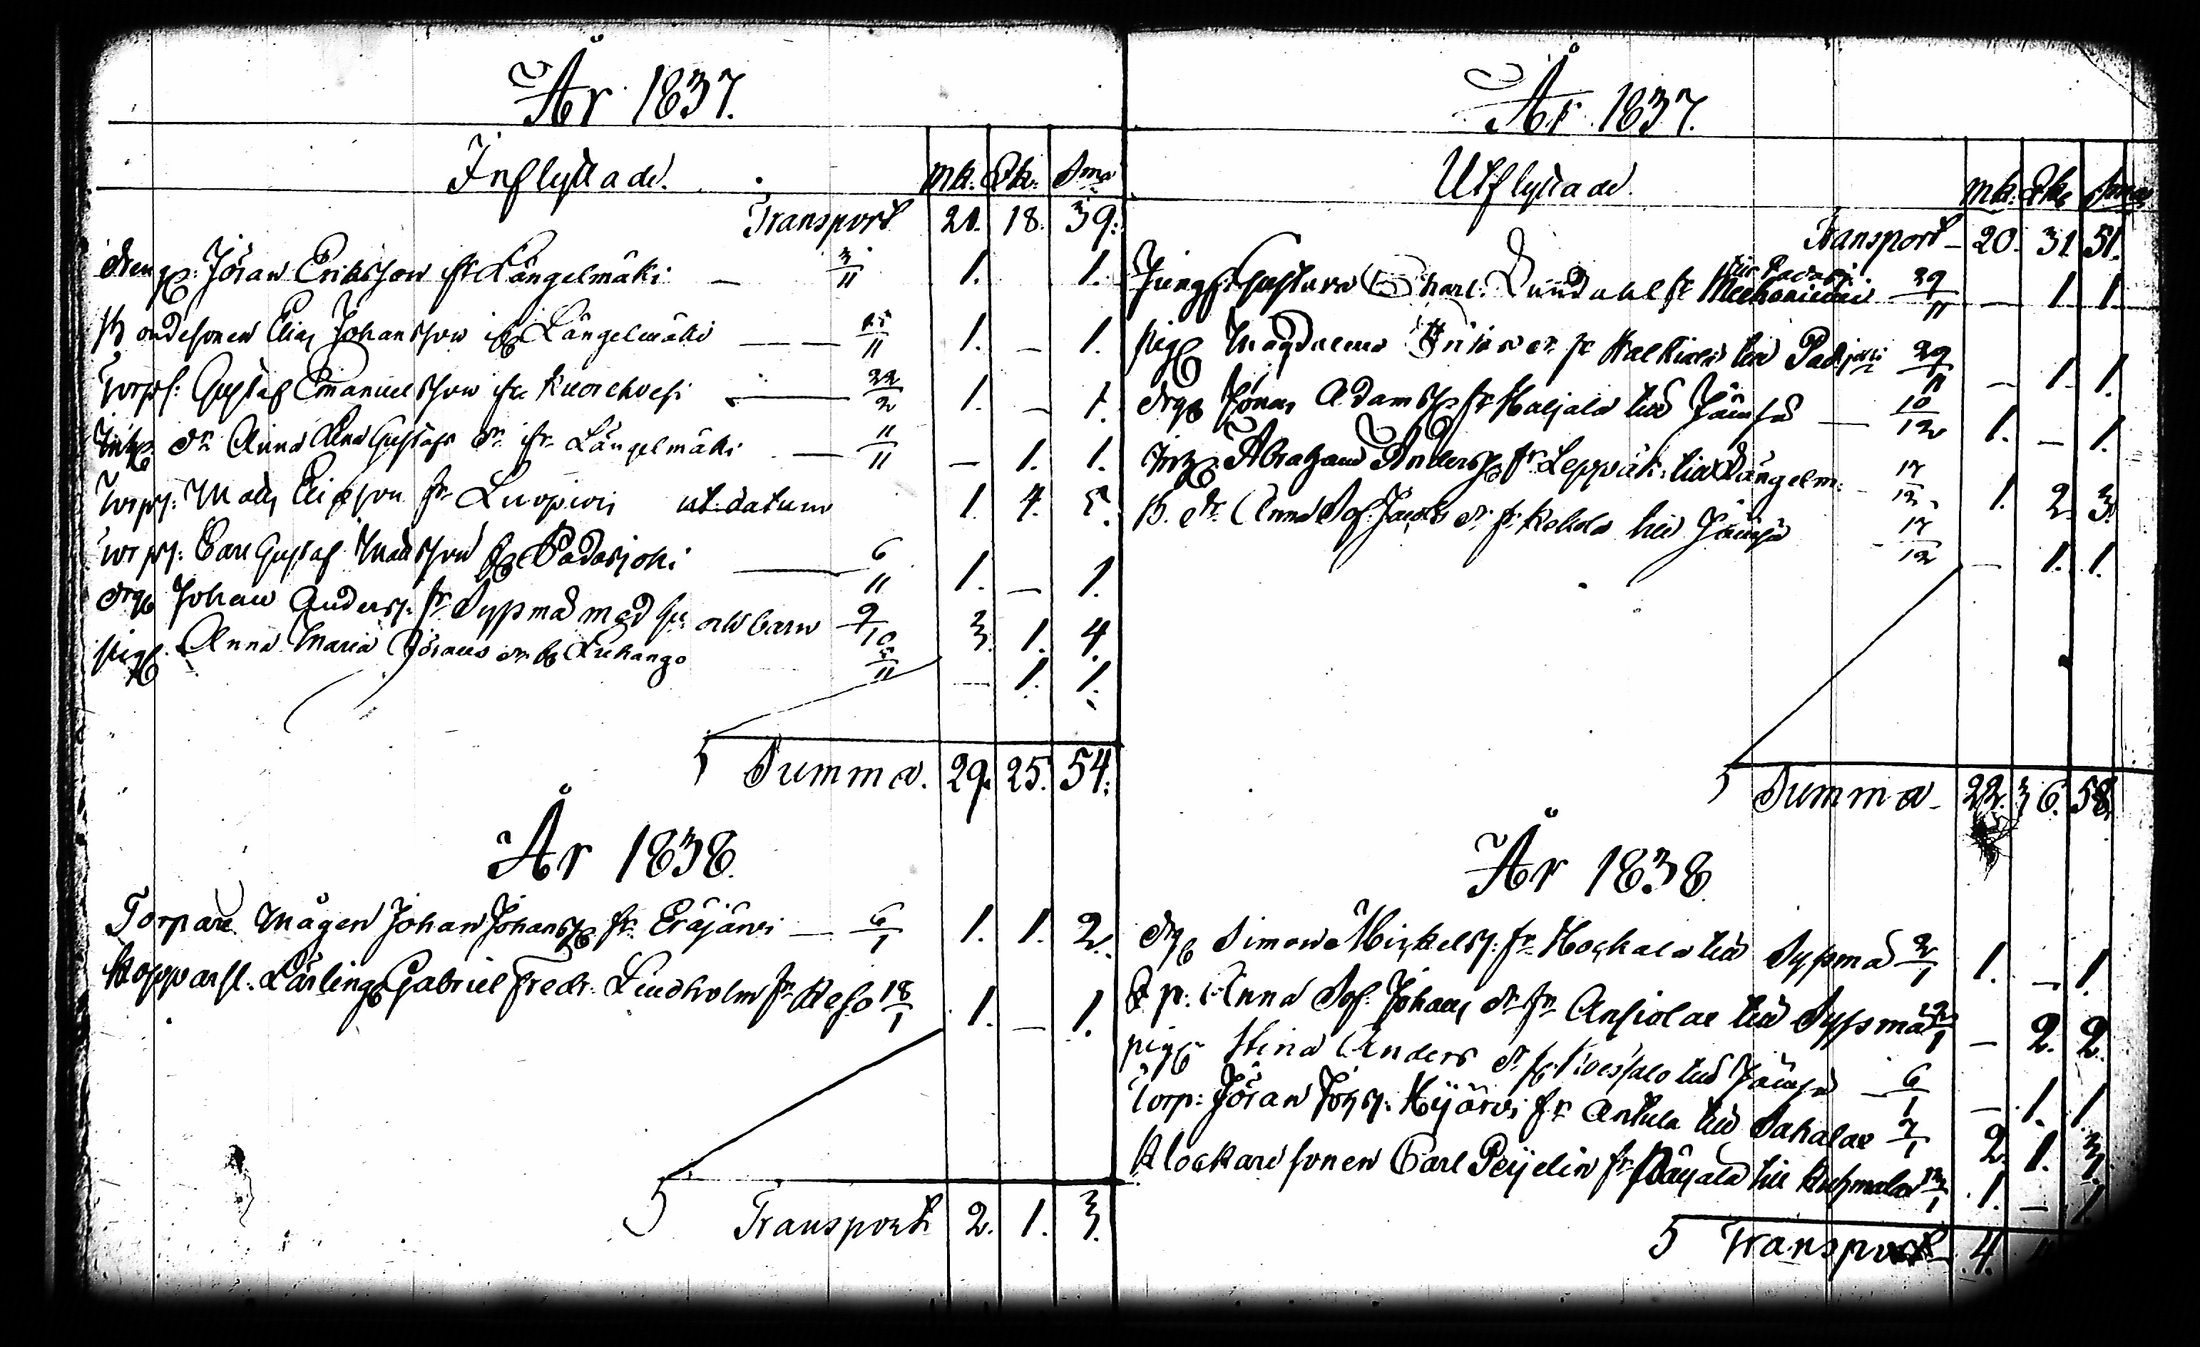 År 1837.
Inflyttade. mk. Qk: Sma
Transport 20. 18. 39.
Dreng: Jöran Eriksson fr Längelmäki — 3/11 1. 1.
Bondesonen Elias Johansson fr Längelmäki — — 25/11 1. — 1.
Torps: Gustaf Emanuelsson fr Kuorehvesi — 22/2 1. — 1.
dr Anna Lena Gustafs dr fr Längelmäki — 11/11 — 1. 1.
Torps: Mats Ericsson fr Luopiois ut datum 1. 4. 5.
Torps: Carl Gustaf Mattsson fr Padasjoki — 6/11 1. — 1.
Drg Johan Anders: fr Sysmä med hu: och barn 9/10 3. 1. 4.
pig Anna Maria Jörans dr fr Luhango 5/11 — 1. 1.
Summa. 29. 25. 54.
År 1838.
Torpare Mågen Johan Johans fr Eräjärvi — 6/1 1. 1. 2.
Kopparsl. Lärling Gabriel Fredr: Lindholm fr Reso 18/1 1. — 1.
Transport 2. 1. 3.
År 1837.
Utflyttade. mk. Qk: Sma
Transport 20. 31. 51.
Jungf: Gustava Charl: Lundahl fr till Padasj. 29/11 — 1. 1.
pig Magdalena fr till Padasj 29/11 — 1. 1.
drg Jonas Adams fr Haljala till Jämsä — 10/12 1. — 1.
Abraham Anders fr Leppäk: till Längelm: 17/12 1. 2. 3.
B. dr Anna Sof: Jacobs dr fr till Jämsä 17/12 — 1. 1.
Summa 22. 36. 58.
År 1838.
drg Simon Michels: fr till Sysmä 2/1 1. — 1.
p: Anna Sof: Johans dr fr Ansiolae till Sysmä — 2. 2.
pig Stina Anders dr fr till Jämsä — 6/1 — 1. 1.
Torp: Jöran Johs: fr Antula till Sahalax 7/1 2. 1. 3.
Klockare sonen Carl Peijelin fr Päyälä till Kuhmalax 1. — 1.
Transport 4.